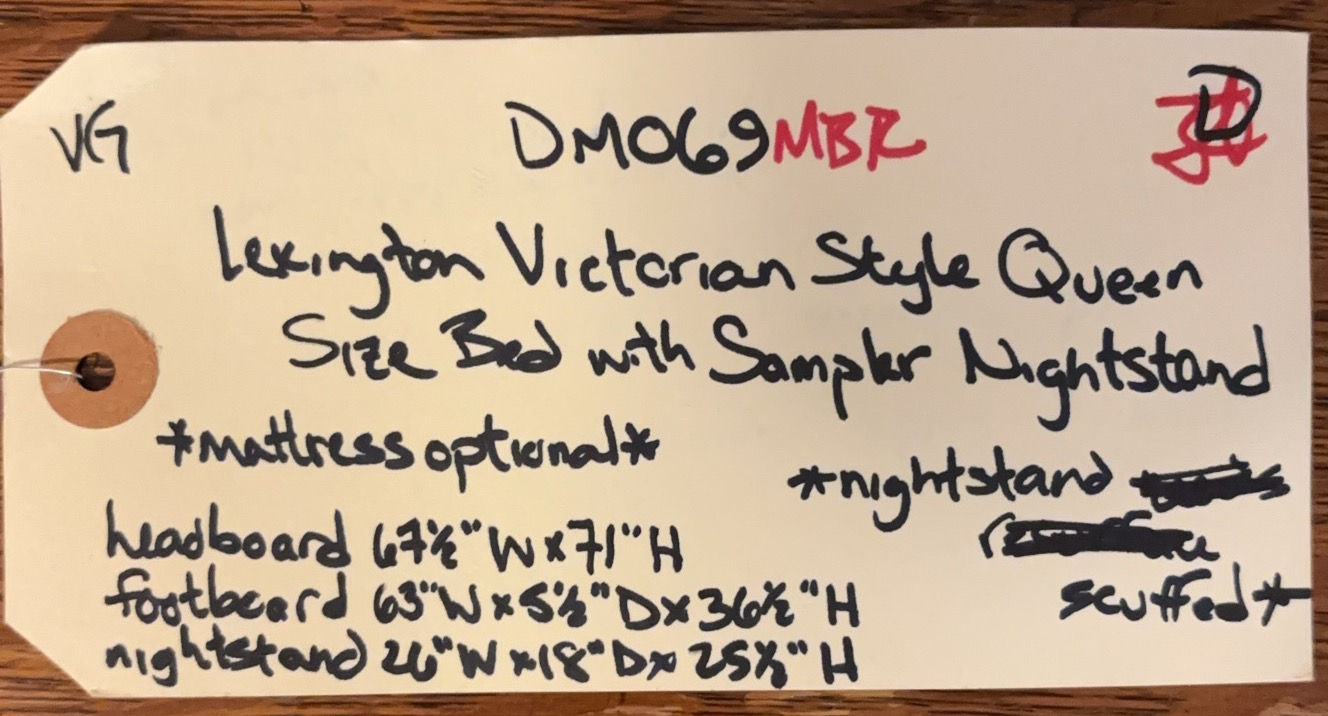 VG DM069MBR D
Lexington Victorian Style Queen
Size Bed with Sampler Nightstand
*mattress optional*
*nightstand
headboard 67½"W x 71"H
footboard 63"W x 5½"D x 36½"H
scuffed*
nightstand 26"W x 18"D x 25½"H